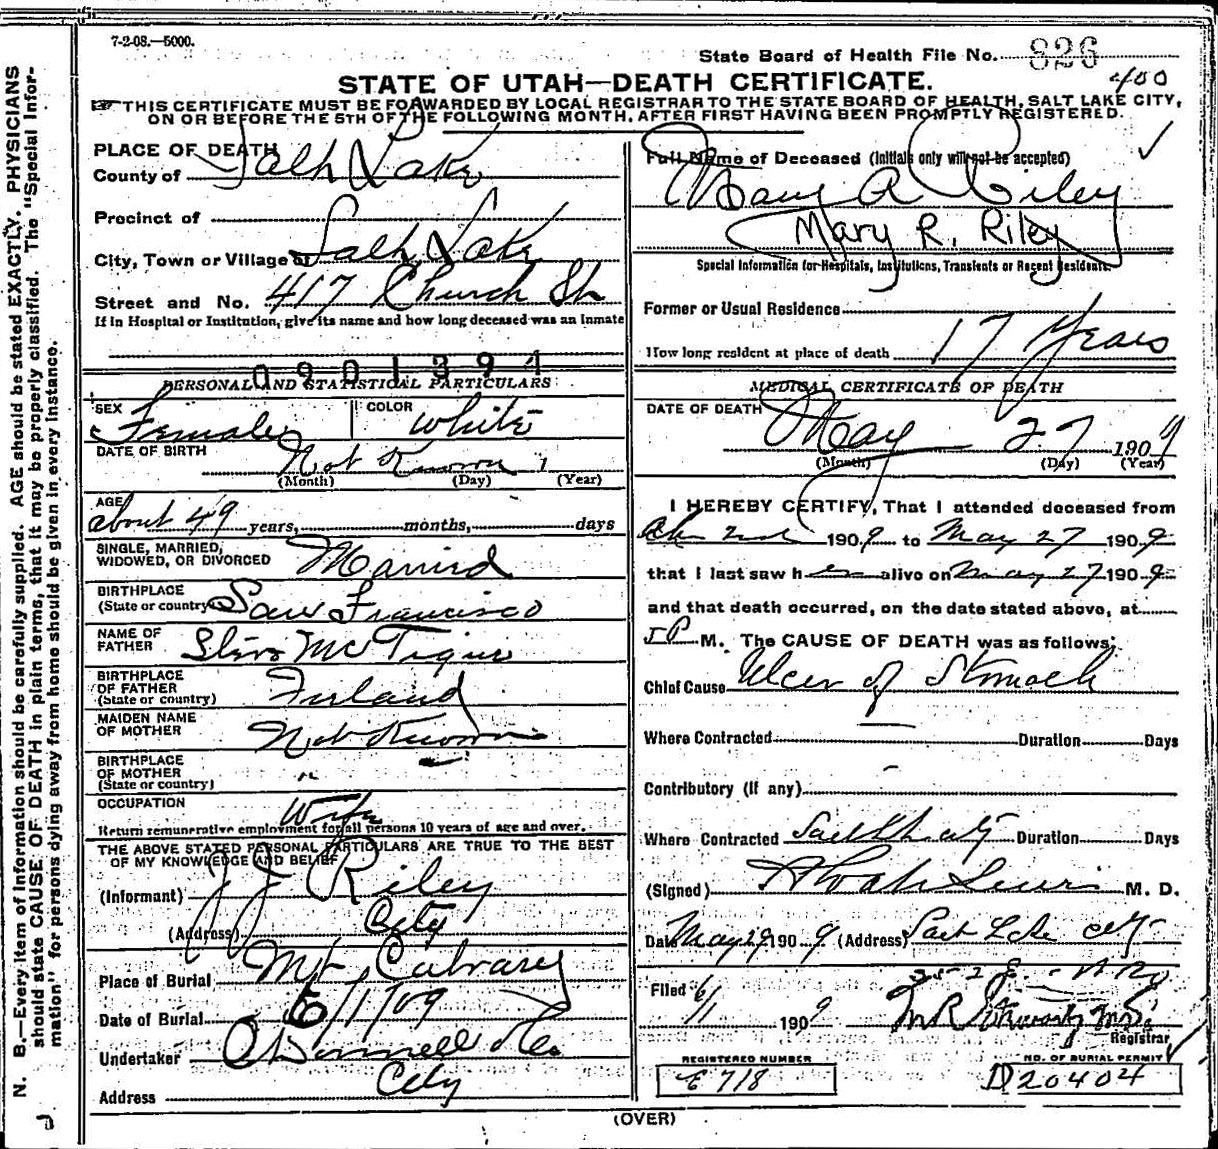 7-2-08.—5000.
State Board of Health File No. 826
400
STATE OF UTAH—DEATH CERTIFICATE.
THIS CERTIFICATE MUST BE FORWARDED BY LOCAL REGISTRAR TO THE STATE BOARD OF HEALTH, SALT LAKE CITY,
ON OR BEFORE THE 5TH OF THE FOLLOWING MONTH, AFTER FIRST HAVING BEEN PROMPTLY REGISTERED.
PLACE OF DEATH
County of Salt Lake
Precinct of
City, Town or Village of Salt Lake
Street and No. 417 Church St
If in Hospital or Institution, give its name and how long deceased was an inmate
0901391
PERSONAL AND STATISTICAL PARTICULARS
SEX Female COLOR White
DATE OF BIRTH Not Known
(Month) (Day) (Year)
AGE about 49 years, months, days
SINGLE, MARRIED, WIDOWED, OR DIVORCED Married
BIRTHPLACE (State or country) San Francisco
NAME OF FATHER McTigue
BIRTHPLACE OF FATHER (State or country) Ireland
MAIDEN NAME OF MOTHER Not Known
BIRTHPLACE OF MOTHER (State or country) "
OCCUPATION Wife
Return remunerative employment for all persons 10 years of age and over.
THE ABOVE STATED PERSONAL PARTICULARS ARE TRUE TO THE BEST
OF MY KNOWLEDGE AND BELIEF
(Informant) J J Riley
(Address) City
Place of Burial Mt Calvary
Date of Burial 6/1/09
Undertaker O'Donnell & Co
Address City
Full Name of Deceased (Initials only will not be accepted)
Mary R Riley
Mary R. Riley
Special Information for Hospitals, Institutions, Transients or Recent Residents.
Former or Usual Residence
How long resident at place of death 17 Years
MEDICAL CERTIFICATE OF DEATH
DATE OF DEATH May 27 1909
(Month) (Day) (Year)
I HEREBY CERTIFY, That I attended deceased from
2nd 1909 to May 27 1909
that I last saw her alive on May 27 1909
and that death occurred, on the date stated above, at
5 P M. The CAUSE OF DEATH was as follows:
Chief Cause Ulcer of Stomach
Where Contracted Duration Days
Contributory (if any)
Where Contracted Salt Lake City Duration Days
(Signed) M. D.
Date May 29 1909 (Address) Salt Lake City
Filed 6/1 1909
Registrar
REGISTERED NUMBER
E 718
NO. OF BURIAL PERMIT
D 20404
(OVER)
N. B.—Every item of information should be carefully supplied. AGE should be stated EXACTLY. PHYSICIANS
should state CAUSE OF DEATH in plain terms, that it may be properly classified. The "Special Infor-
mation" for persons dying away from home should be given in every instance.